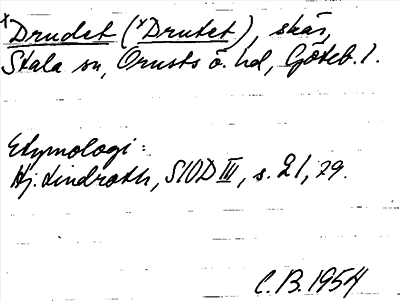 ˣDrudet (ˣDrutet), skär,
Stala sn, Orusts ö. hd, Göteb. l.
Etymologi:
Hj. Lindroth, SIOD III, s. 21, 79.
C.B. 1954